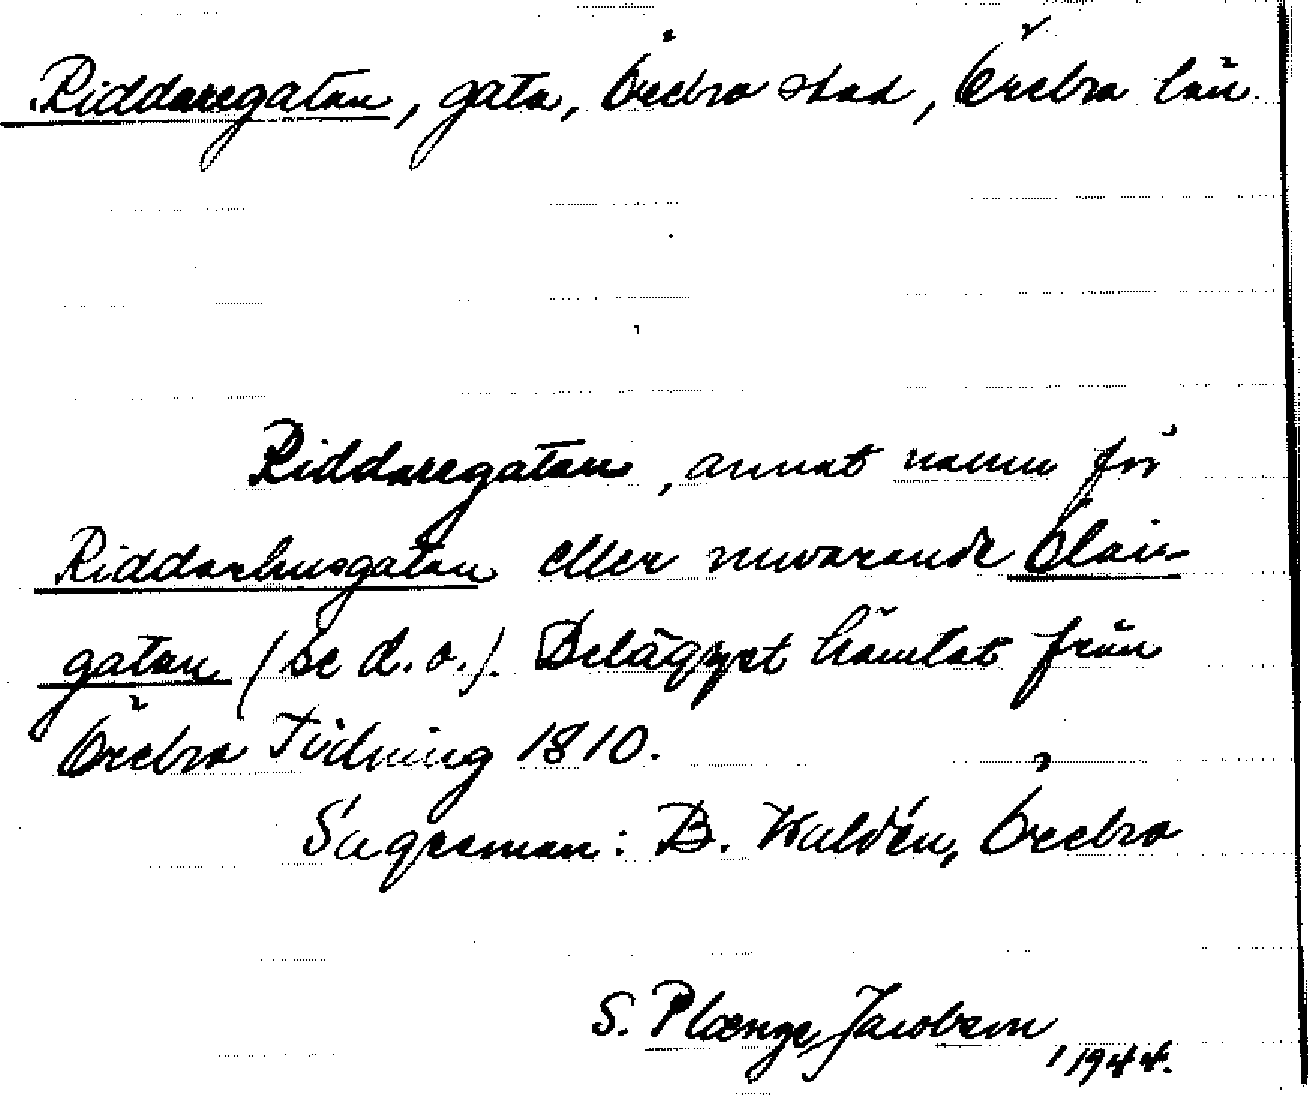 Riddaregatan, gata, Örebro stad, Örebro län.
Riddaregatan, annat namn för
Riddarhusgatan eller nuvarande Olai-
gatan (se d.o.). Belägget hämtat från
Örebro Tidning 1810.
Sagesman: B. Waldén, Örebro
S. Plænge Jacobson, 1944.